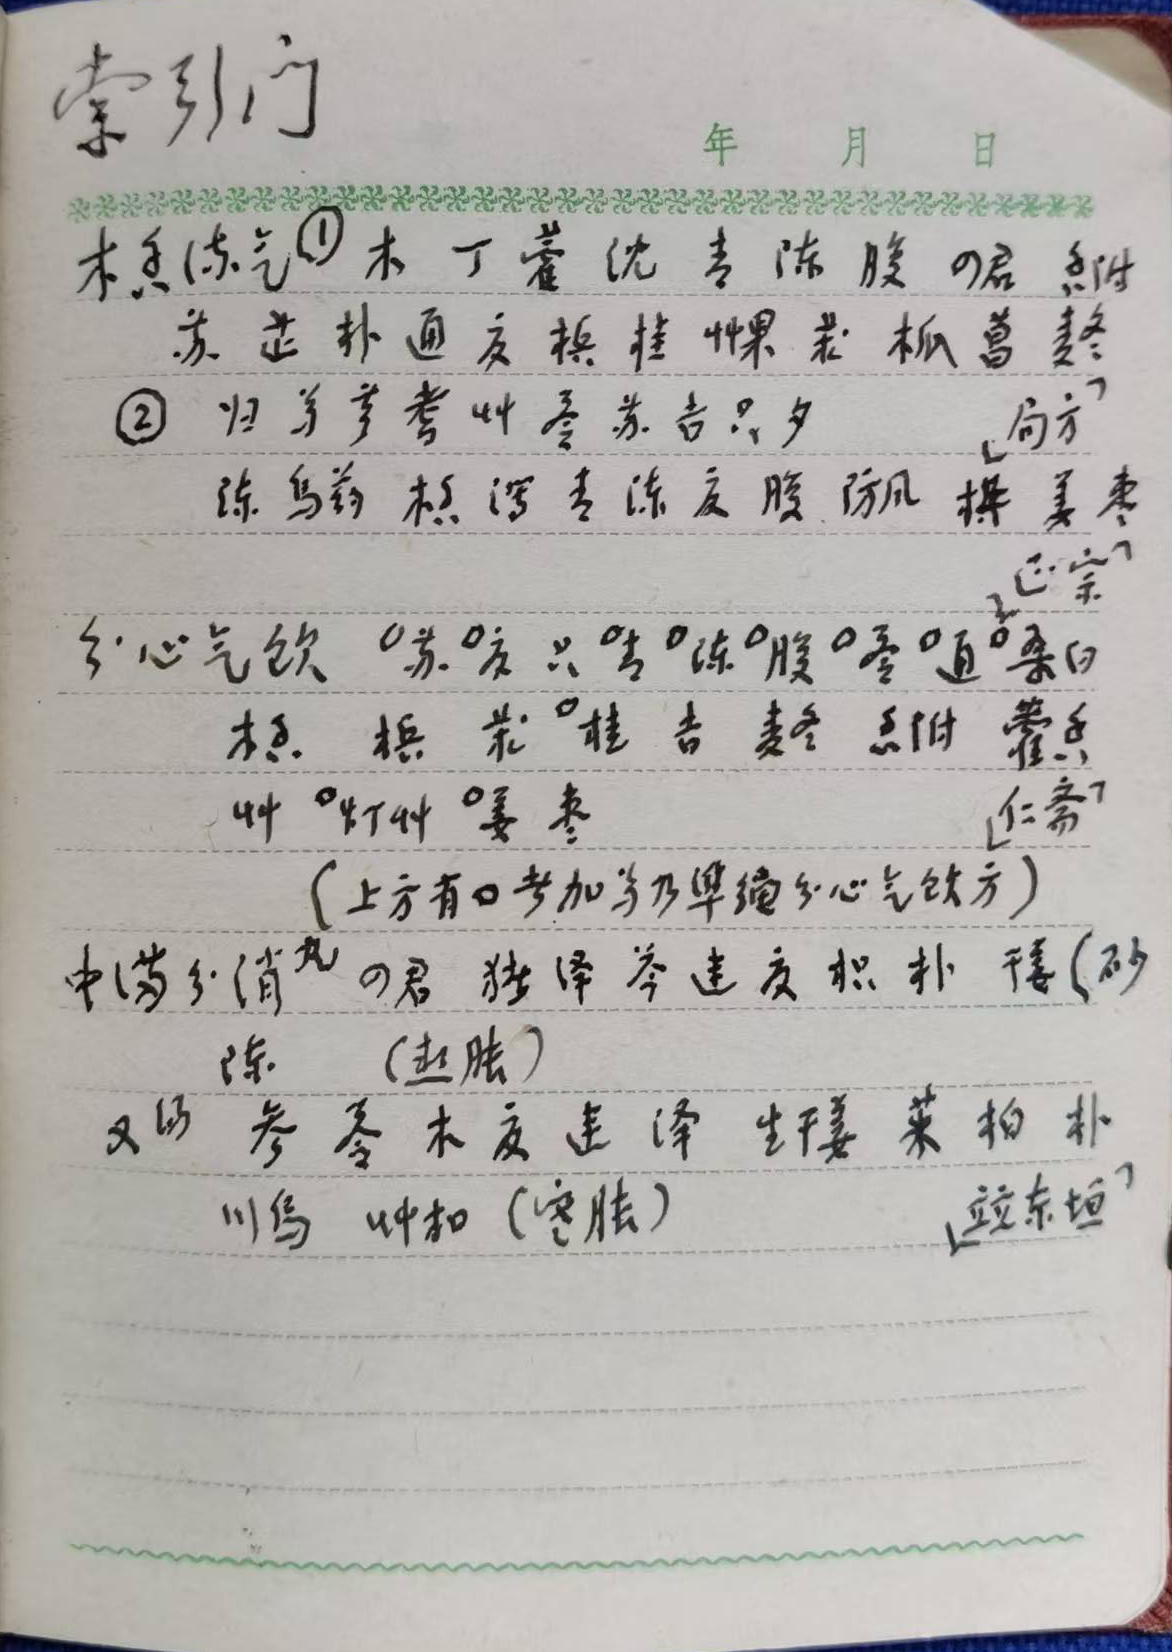 索引门
年 月 日
木香流气① 木 丁 藿 沈 青 陈 腹 四君 香附
苏 芷 朴 通 夏 槟 桂 艹果 莪 木瓜 菖 麦冬
② 归 芎 芍 耆 艹 苓 苏 吉 只 夕
「局方」
陈 乌药 木香 泻 青 陈 夏 腹 防风 槟 姜 枣
「正宗」
分心气饮 苏 夏 只 青 陈 腹 苓 通 桑白
木香 槟 莪 桂 吉 麦冬 香附 藿香
艹 灯艹 姜 枣 「仁斋」
(上方有○者加芍乃準绳分心气饮方)
中满分消丸 四君 猪 泽 芩 连 夏 枳 朴 干姜(砂
陈 (热胀)
又汤 参 苓 木 夏 连 泽 生干姜 萸 柏 朴
川乌 艹扣(寒胀) 「立东垣」